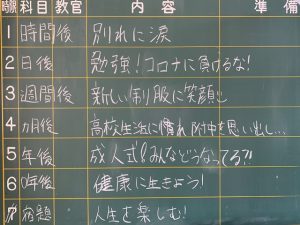 時限 科目 教官 内容 準備
1 時間後 別れに涙
2 日後 勉強!コロナに負けるな!
3 週間後 新しい制服に笑顔!!
4 カ月後 高校生活に慣れ 附中を思い出し…
5 年後 成人式!みんなどうなってる?!
6 0年後 健康に生きよう!
宿題 人生を楽しむ!